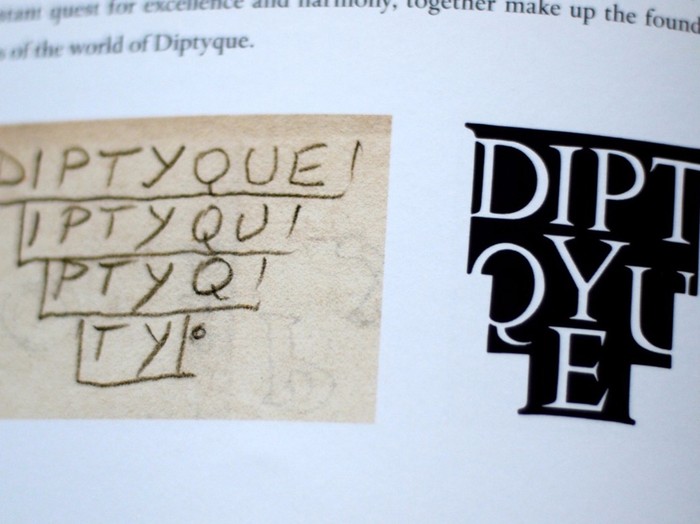 quest for excellence and harmony, together make up the found
of the world of Diptyque.
DIPTYQUE
IPTYQU
PTYQ
TY
DIPT
QYU
E